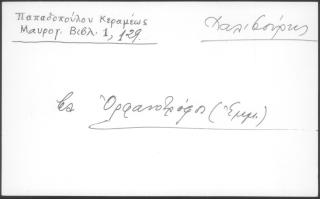 Παπαδοπούλου Κεραμέως
Μαυρογ. Βιβλ. 1, 129
Χαλιβούρης
βλ Ὀρφανοτρόφος (Ἐμμ.)